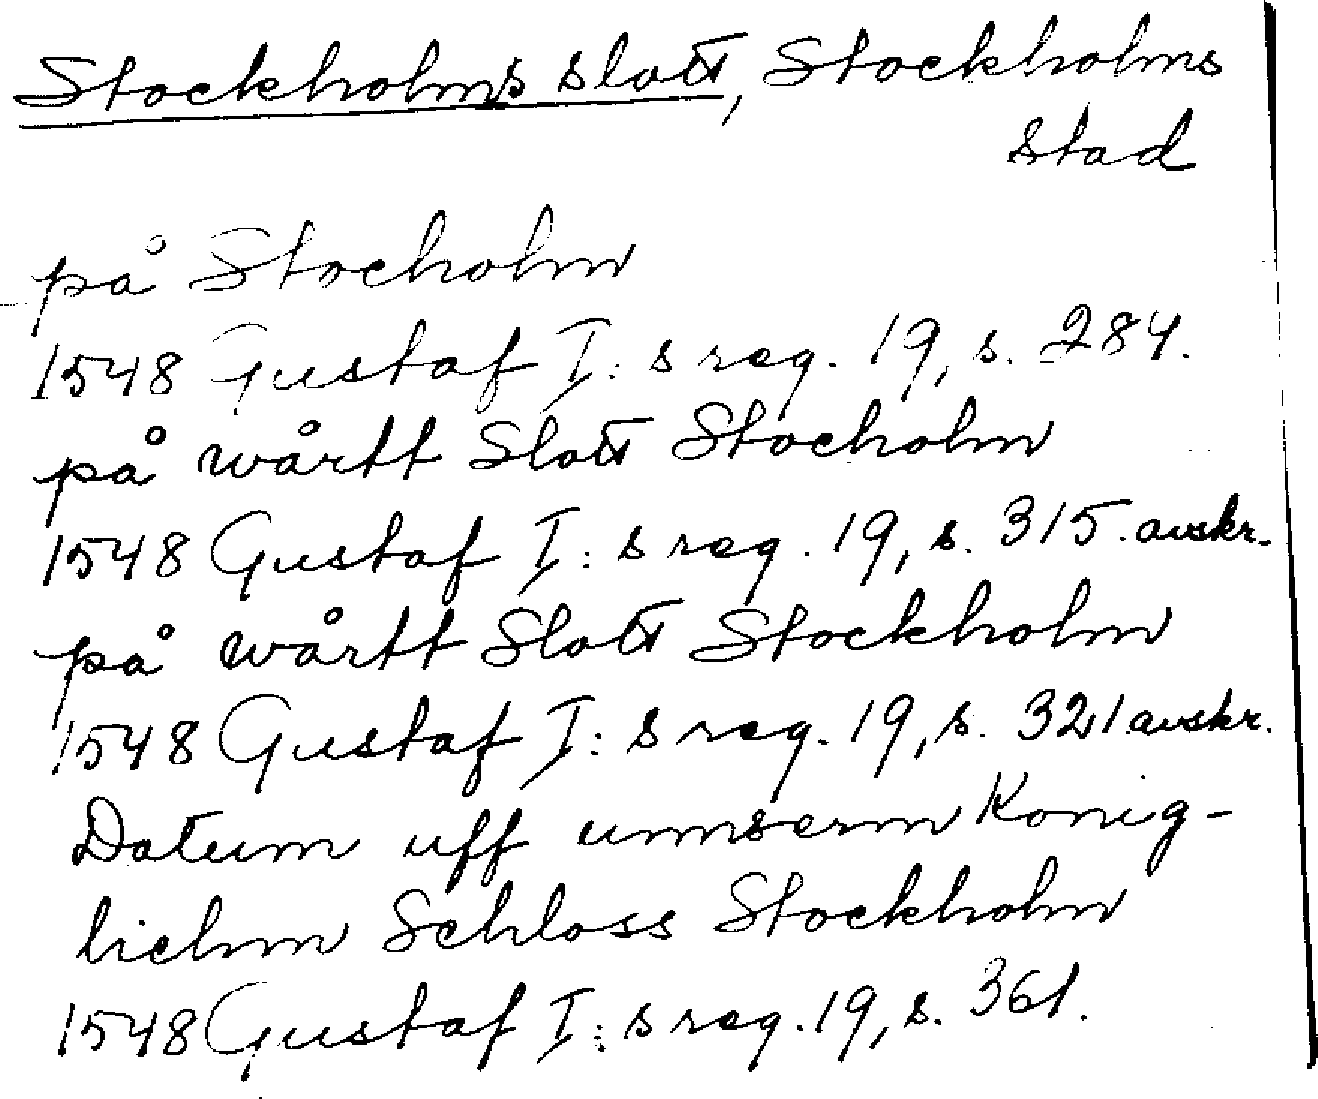 Stockholms slott, Stockholms
stad
på Stocholm
1548 Gustaf I:s reg. 19, s. 284.
på wårtt Slott Stocholm
1548 Gustaf I:s reg. 19, s. 315. avskr.
på wårtt Slott Stockholm
1548 Gustaf I:s reg. 19, s. 321 avskr.
Datum uff unnserm Konig-
lichm Schloss Stockholm
1548 Gustaf I:s reg. 19, s. 361.